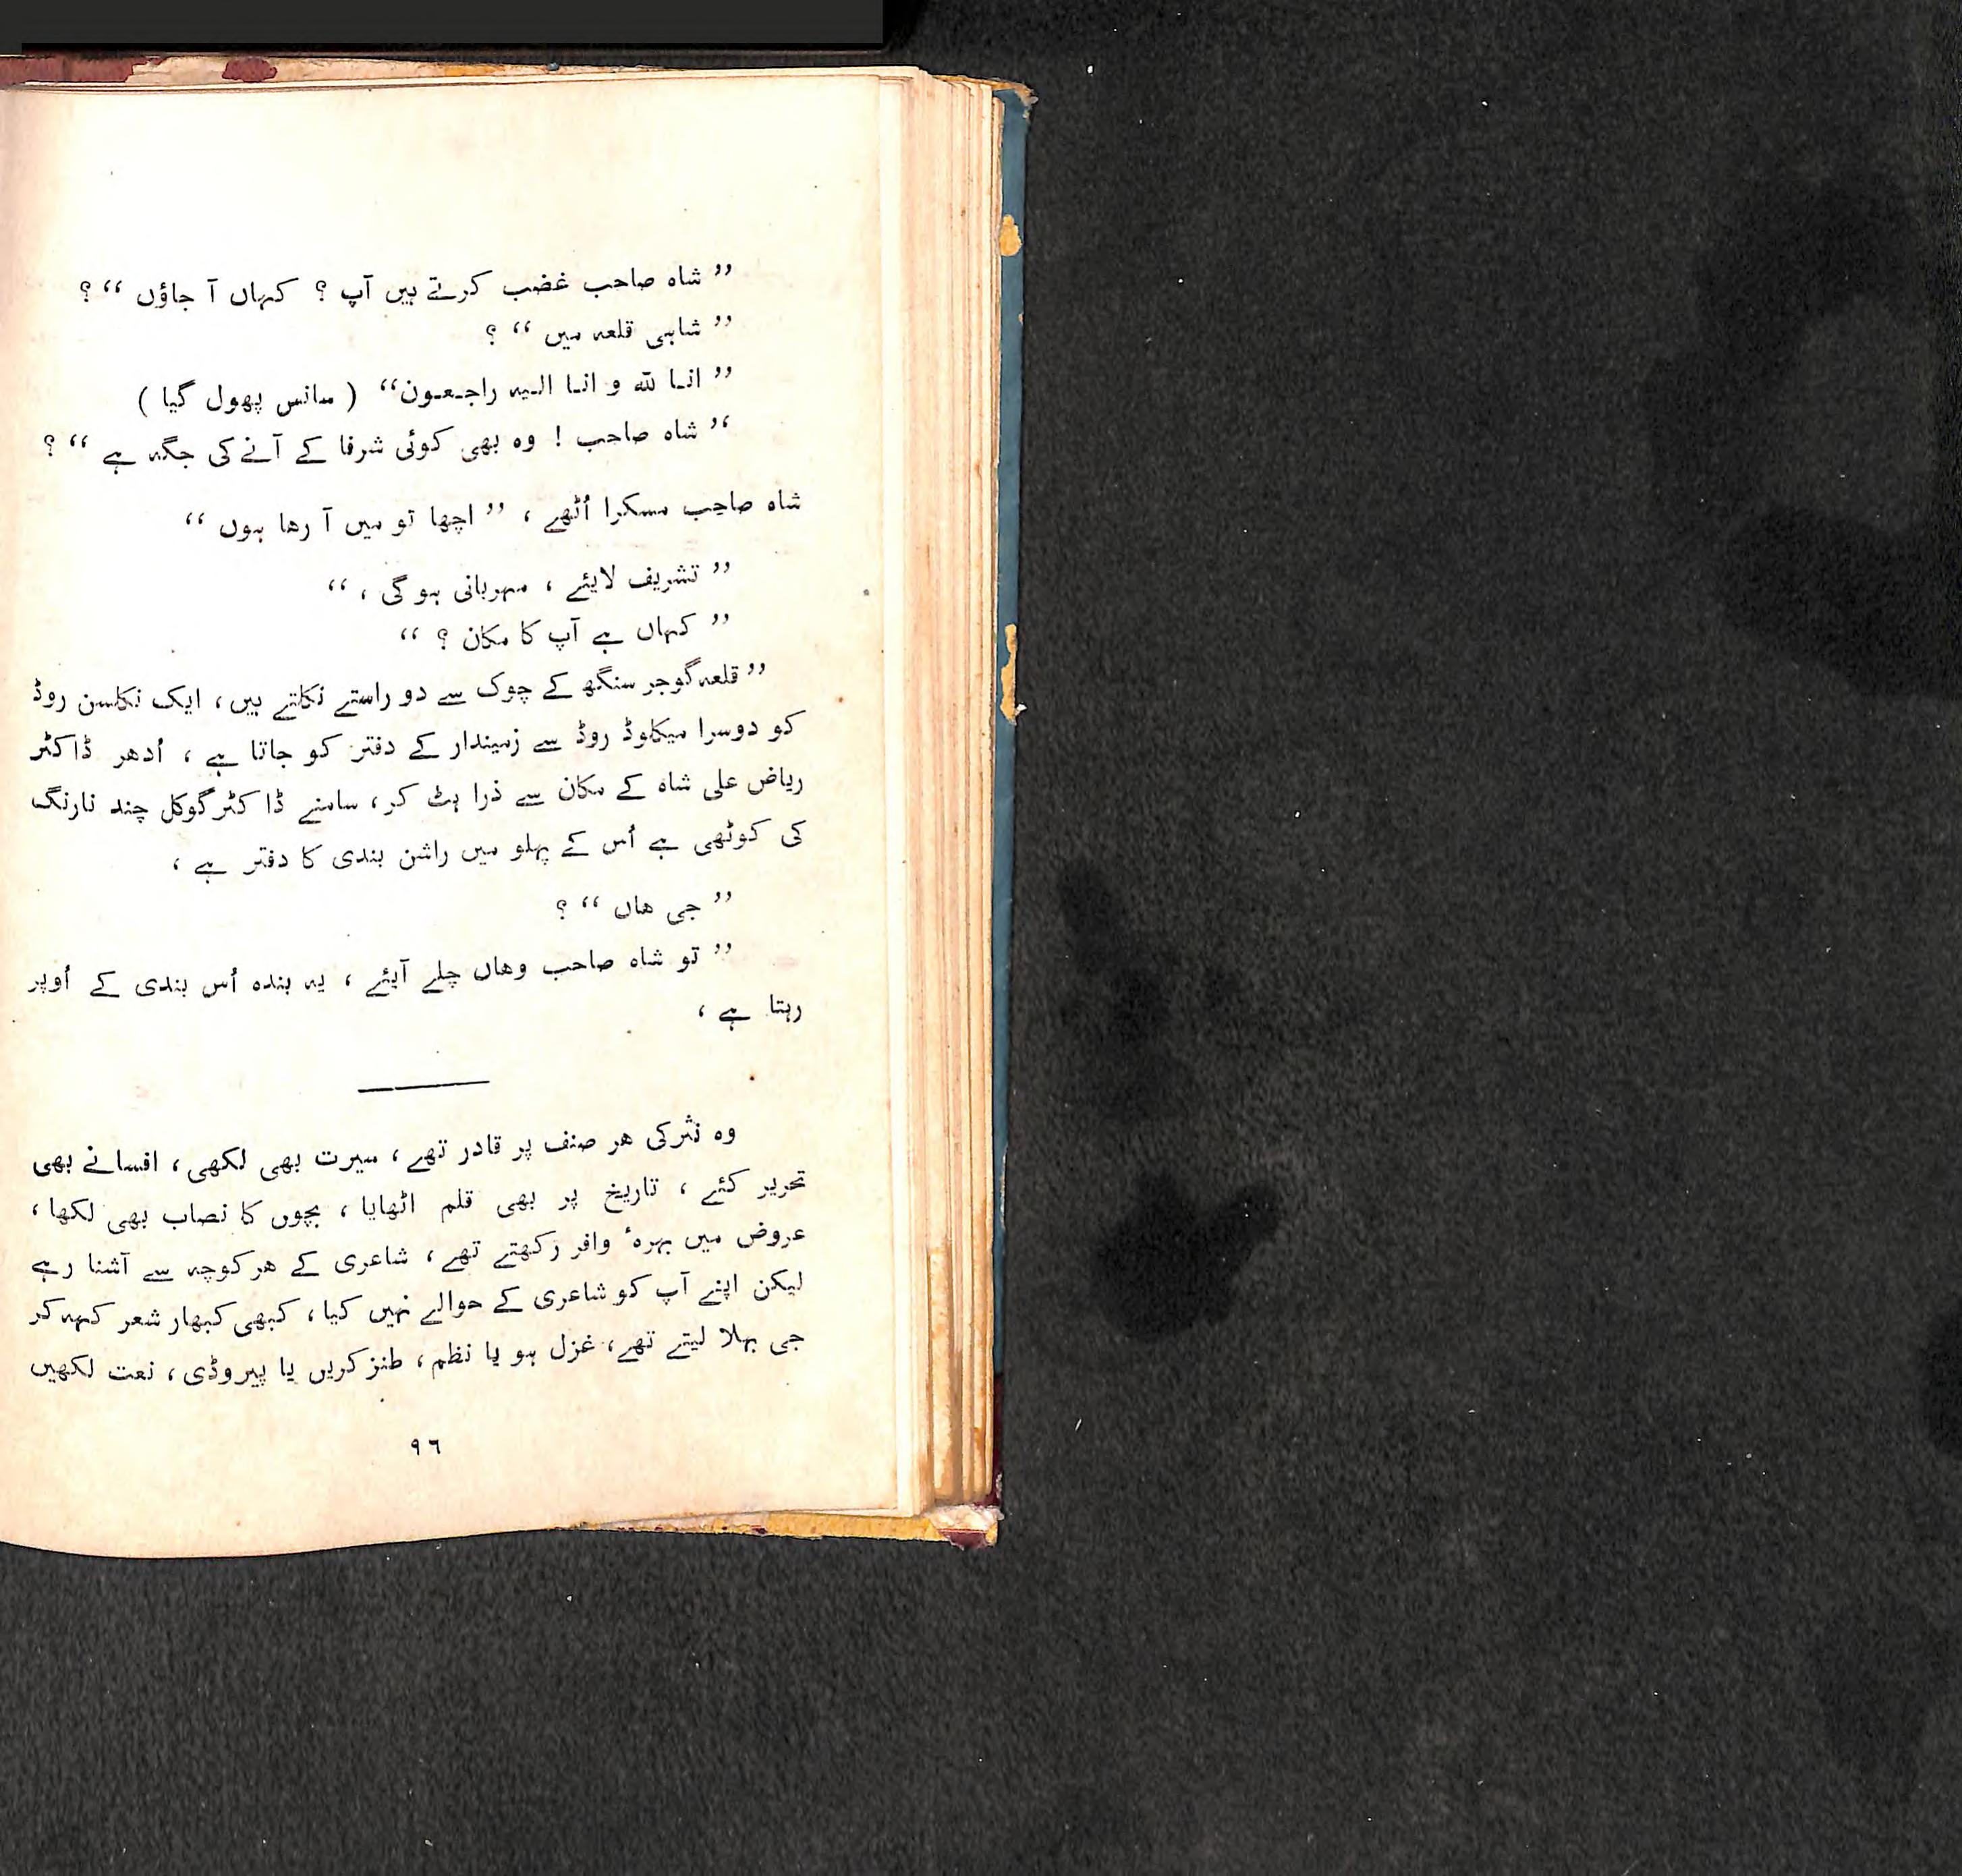 ” شاہ صاحب غضب کرتے ہیں آپ ؟ کہاں آ جاؤں “ ؟
” شاہی قلعہ میں “ ؟
” انا للہ و انا الیہ راجعون“ ( سانس پھول گیا )
” شاہ صاحب ! وہ بھی کوئی شرفا کے آنے کی جگہ ہے “ ؟
شاہ صاحب مسکرا اُٹھے ، ” اچھا تو میں آ رھا ہوں “
” تشریف لایئے ، مہربانی ہو گی ، “
” کہاں ہے آپ کا مکان ؟ “
” قلعہ گوجر سنگھ کے چوک سے دو راستے نکلتے ہیں، ایک نکلسن روڈ
کو دوسرا میکلوڈ روڈ سے زمیندار کے دفتر کو جاتا ہے ، اُدھر ڈاکٹر
ریاض علی شاہ کے مکان سے ذرا ہٹ کر، سامنے ڈاکٹر گوکل چند نارنگ
کی کوٹھی ہے اُس کے پہلو میں راشن بندی کا دفتر ہے ،
” جی ھاں “ ؟
” تو شاہ صاحب وھاں چلے آیئے ، یہ بندہ اُس بندی کے اُوپر
رہتا ہے ،
وہ نثر کی ھر صنف پر قادر تھے ، سیرت بھی لکھی ، افسانے بھی
تحریر کئے ، تاریخ پر بھی قلم اٹھایا ، بچوں کا نصاب بھی لکھا ،
عروض میں بہرۂ وافر رکھتے تھے ، شاعری کے ھر کوچہ سے آشنا رہے
لیکن اپنے آپ کو شاعری کے حوالے نہیں کیا ، کبھی کبھار شعر کہہ کر
جی بہلا لیتے تھے، غزل ہو یا نظم ، طنز کریں یا پیروڈی ، نعت لکھیں
٩٦